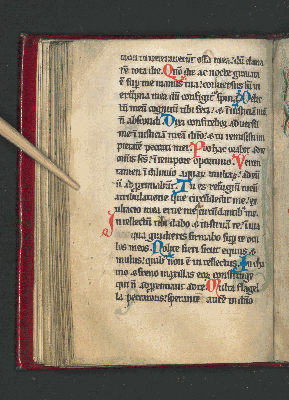 ossa mea: dum clama
re tota die. Qm̄ die ac nocte grauata
ē sup me manus tua: conuersus sum in
erūpna mea dum configit᷑ spina. Delic
tū meū cognitū tibi feci: & iniusticiā meā
n̄ abscondi. Dixi confitebor aduersū
me iniusticiā meā dn̄o: & tu remisisti im
pietatē peccati mei. Pro hac orabit ad te
om̄is sc̄s: in tempore oportuno. Verū
tamen ī diluuio aquar̄ multar̄: ad eū
n̄ approximabūt. Tu es refugiū meū a
tribulatione que circūdedit me: ex
ultacio mea erue me a circūdantib me.
Intellectū tibi dabo & instruā te: ī uia
qua gradieris firmabo sup te ocu
los meos. Nolite fieri sicut equus &
mulus: quib non ē intellectus. In cha
mo & freno maxillas eor̄ constringe:
qui n̄ approximant ad te. Multa flagel
la peccatoris: sperantē autē in dn̄o